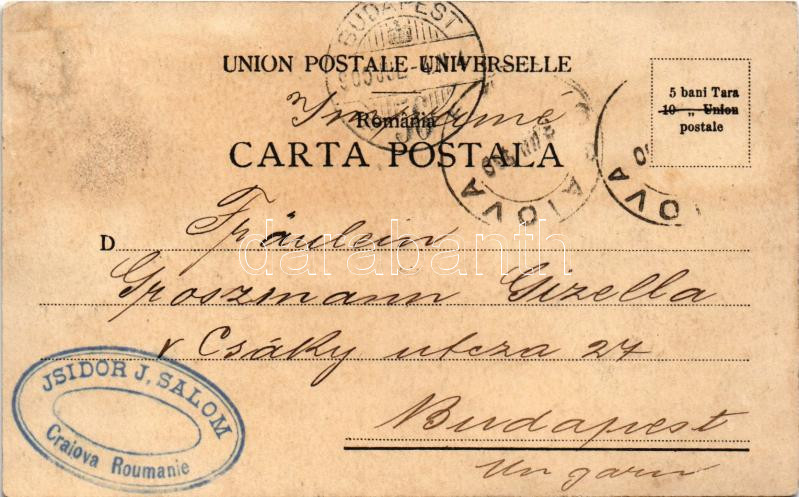 BUDAPEST
UNION POSTALE UNIVERSELLE
Imprimé
5 bani Tara
10 „ Union
postale
Romania
CARTA POSTALA
CRAIOVA
OVA
D Fräulein
darabanth
Groszmann Gizella
V Csáky utcza 24
JSIDOR J. SALOM
Craiova Roumanie
Budapest
Ungarn